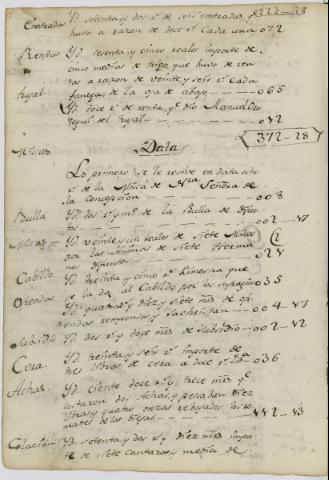 222-28
Entrada Yd. setenta y dos rs. de seis entradas q.
huvo a razon de doce rs. Cada una 072
Rentas Yd. setenta y cinco reales importe de
cinco medias de trigo, que huvo de ren
tas a razon de veinte y seis rs. Cada
fanega de la oja de abajo 065
Yd. doce rs. de renta, q. dio Manuel
del 012
372-28
Data
Misas
Lo primero se le recive en data ocho
rs. de la Misa de Ntra. Señora de
la Concepcion 008
Bulla Yd. dos rs. y ms. de la Bulla de Difun
tos 002-17
Misas Yd. veinte y un reales de siete Misas
por las Animas de siete Herma
nos difuntos 021
Cabildo Yd. treinta y cinco rs. limosna que
se la da al Cabildo por los 035
Ofrendas Yd. quatro rs. y diez y siete ms. de ofr
rendas responsos y 004-17
Subsidio Yd. dos rs. y doce ms. de Subsidio 002-12
Cera Yd. treinta y seis rs. importe de
tres libras de cera a doce rs. 036
Achas Yd. ciento doce rs. y trece ms. q.
costaron dos Achas, y pesaron diez
libras y quatro onzas rebajados los re
mates de las viejas 112-13
Colacion Yd. setenta y dos rs. y diez ms. impor
te de siete cantaras y media de